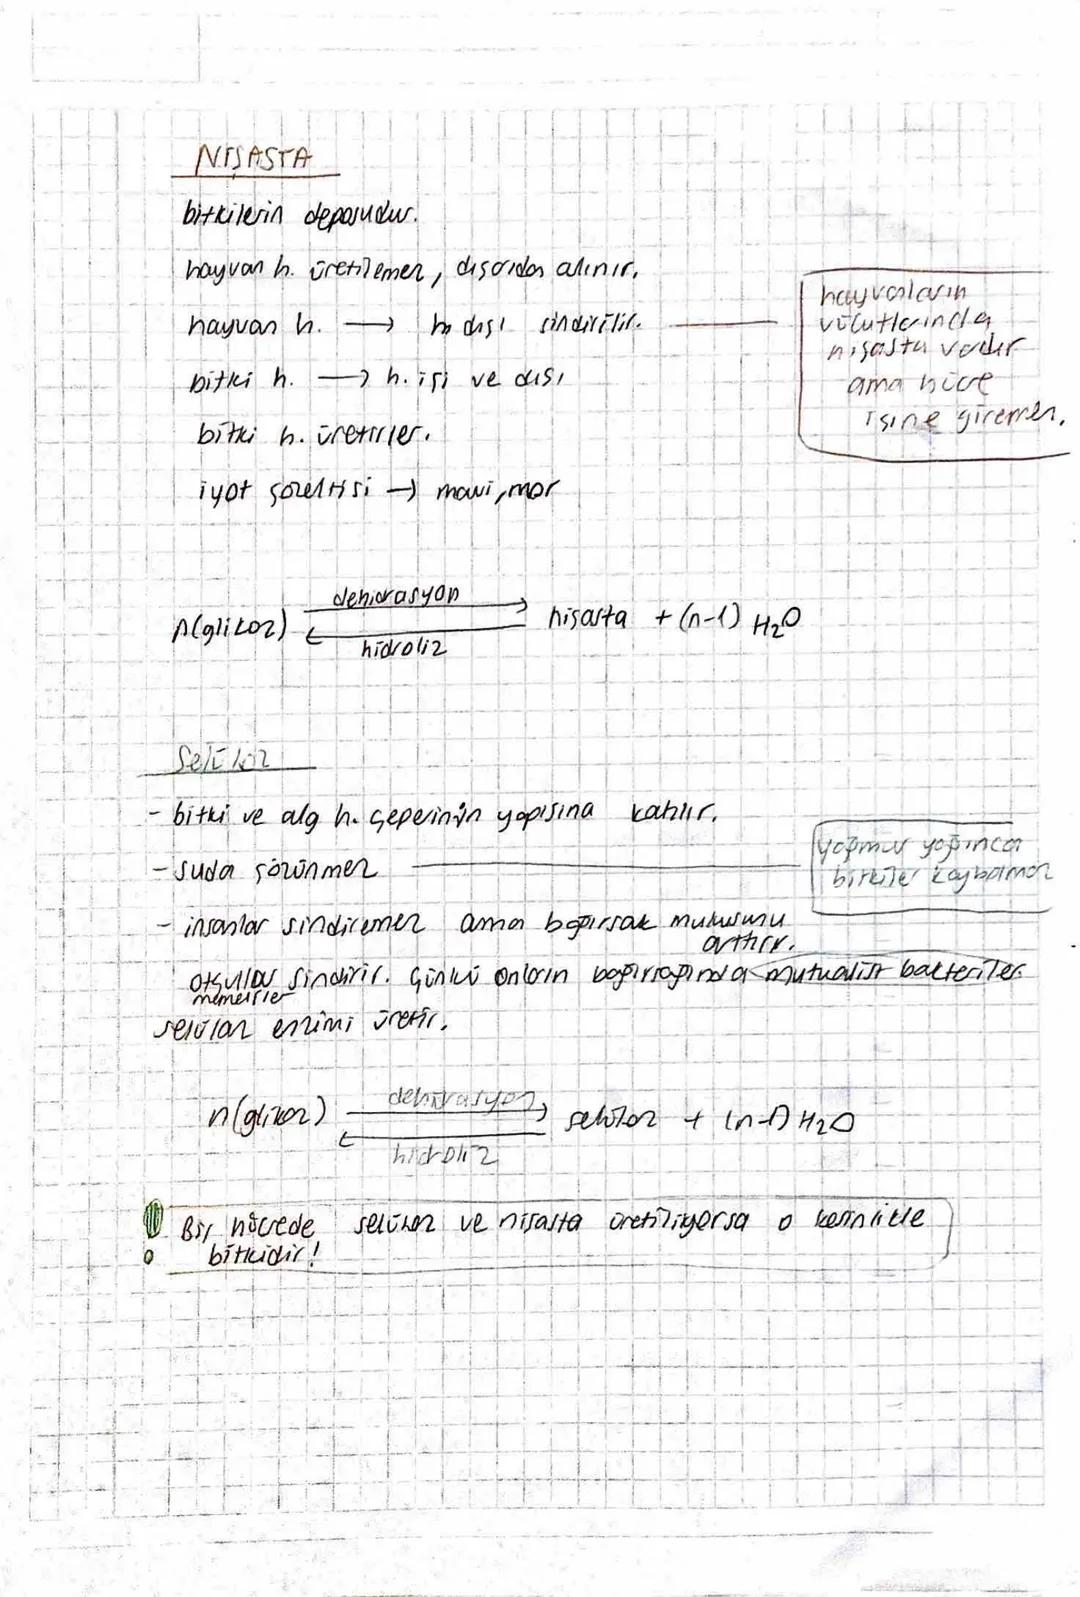 NİŞASTA
bitkilerin deposudur.
hayvan h. üretilemez, dışarıdan alınır.
hayvan h. → h. dışı sindirilir.
hayvanların
vücutlarında
nişasta vardır
ama hücre
içine giremez.
bitki h. → h. içi ve dışı
bitki h. üretirler.
iyot çözeltisi → mavi, mor
dehidrasyon
n(glikoz) ⇄ nişasta + (n-1) H₂O
hidroliz
Selüloz
- bitki ve alg h. çeperinin yapısına katılır.
- suda çözünmez
yağmur yağınca
bitkiler kaybolmaz
- insanlar sindiremez ama bağırsak mukusunu
arttırır.
otçullar sindirir. Çünkü onların bağırsağında mutualist bakteriler
memeliler
selülaz enzimi üretir.
dehidrasyon
n(glikoz) ⇄ selüloz + (n-1) H₂O
hidroliz
Bir hücrede selüloz ve nişasta üretiliyorsa o kesinlikle
bitkidir!